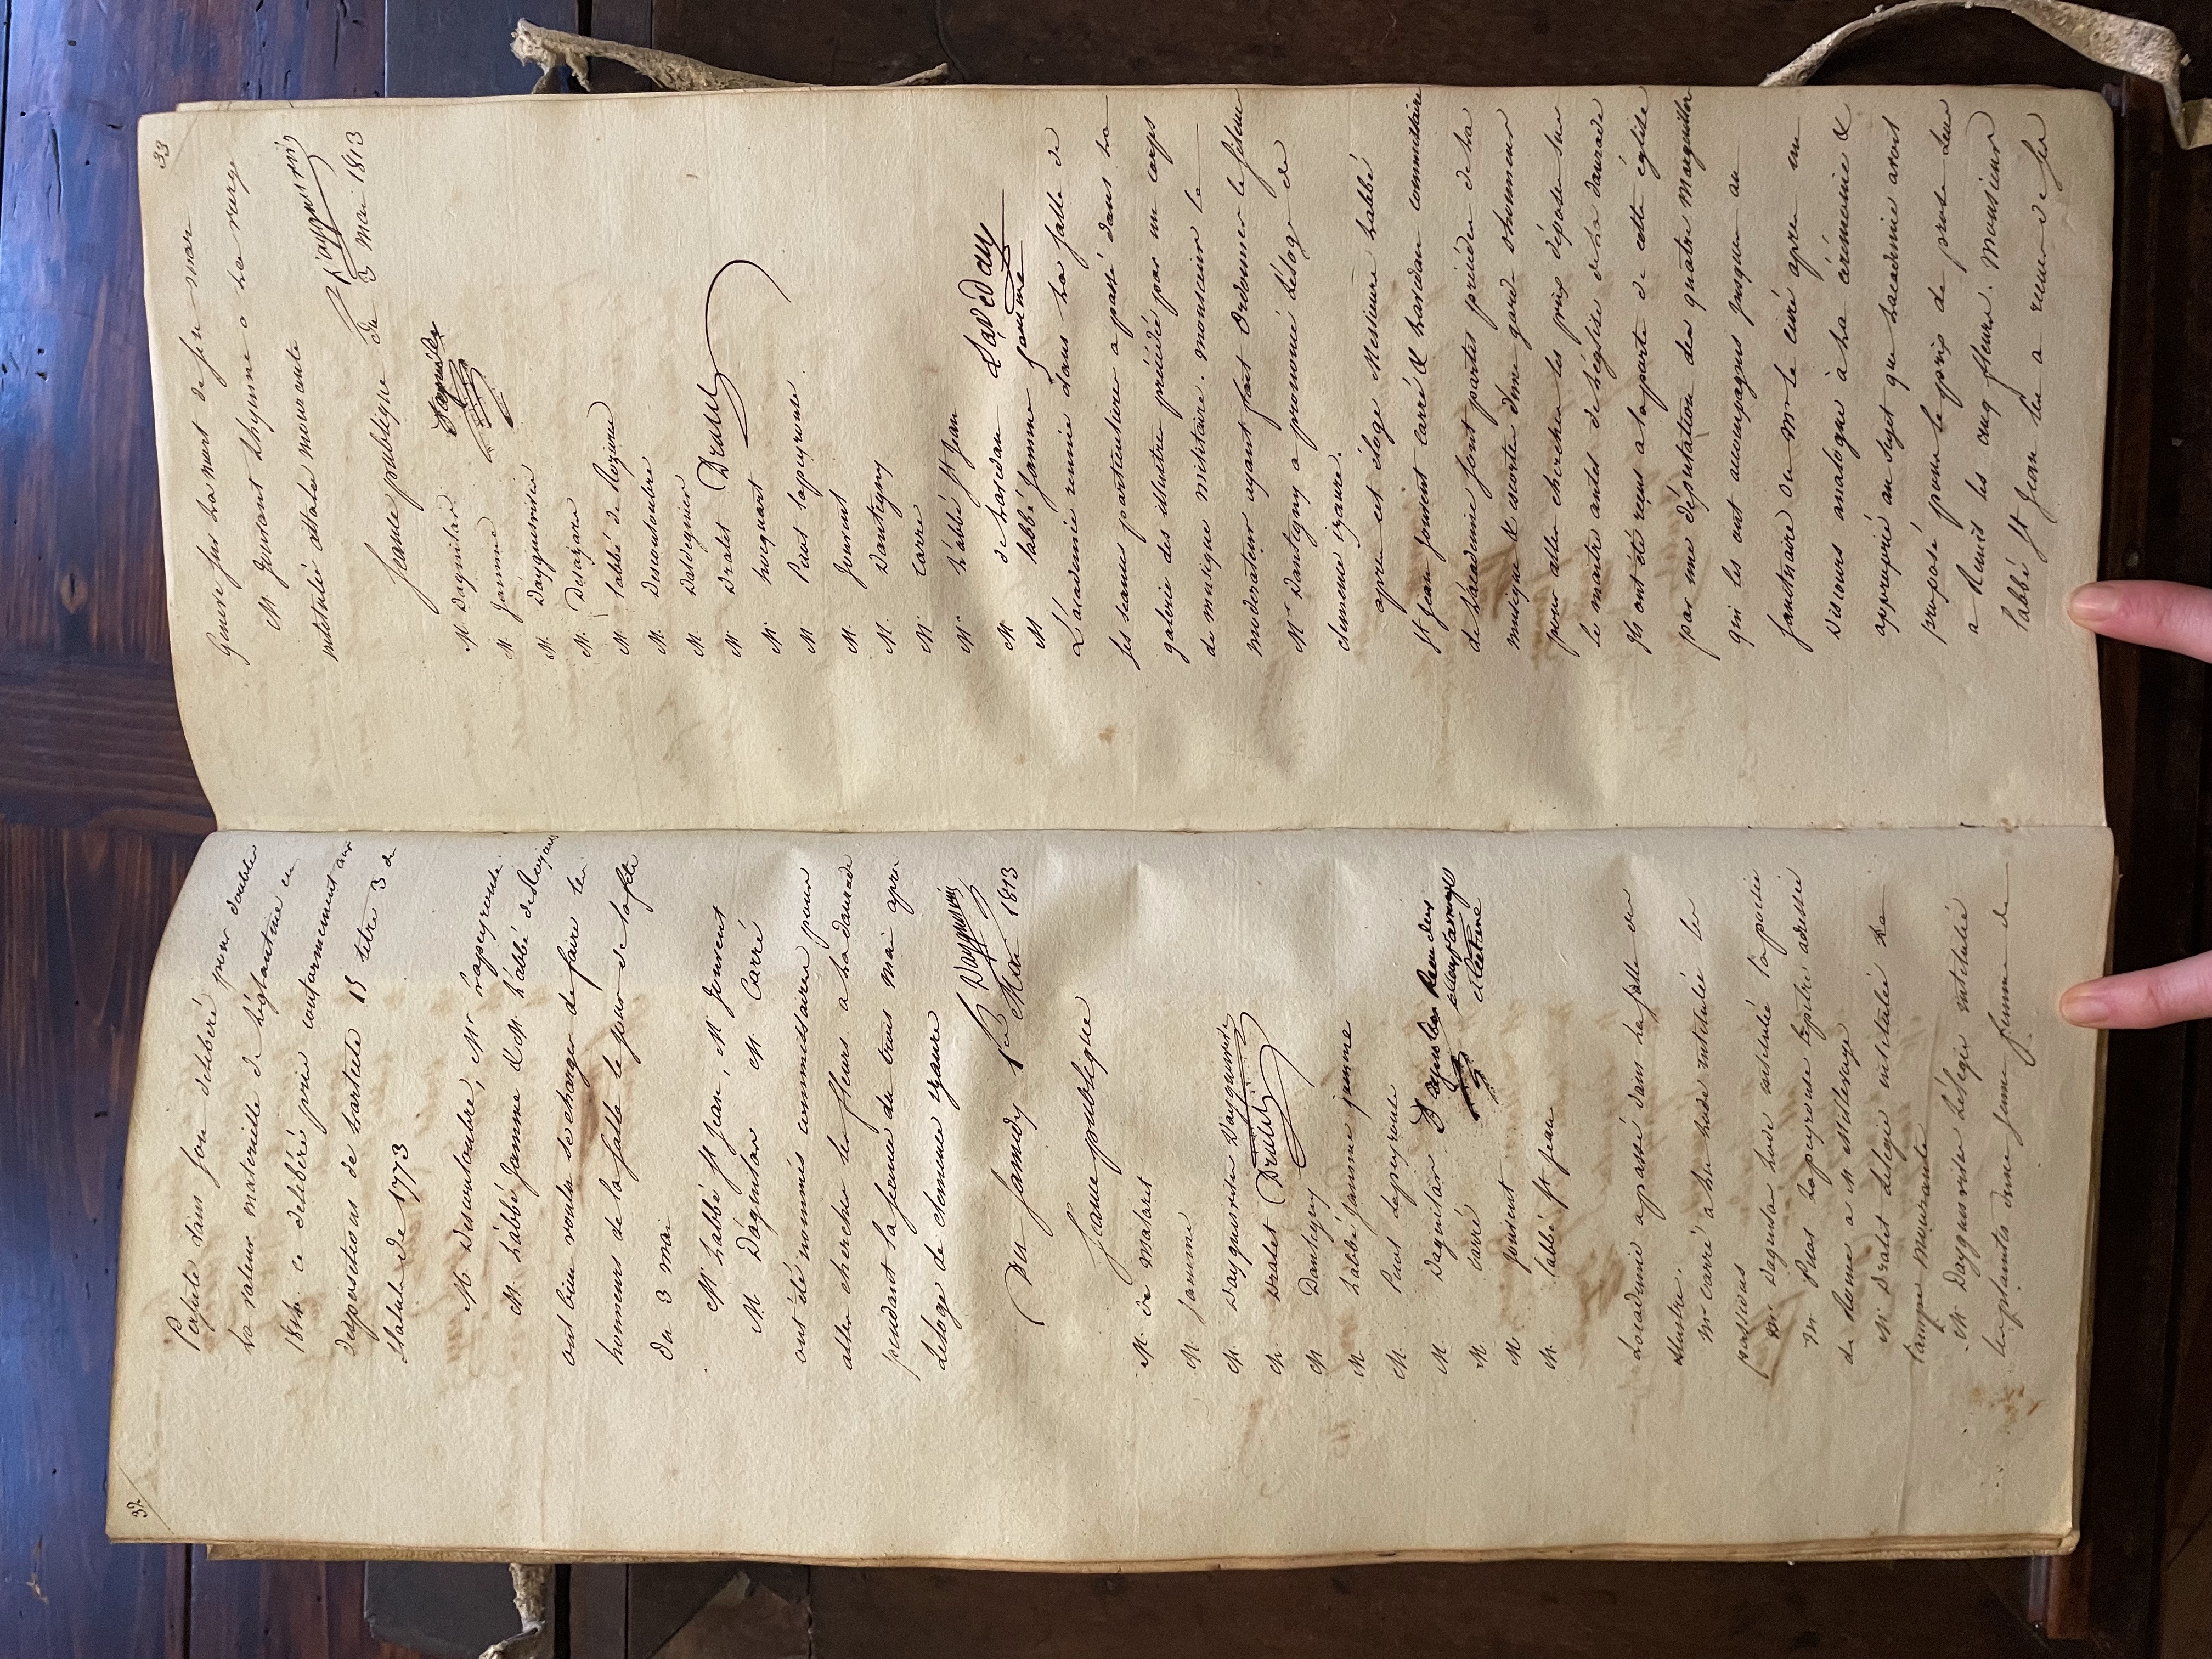 32
Poitiers dans son délibéré pour doubler
la valeur materielle de l'églantine en
1814. ce délibéré pris conformement aux
dispositions de l'article 15 titre 3 de
Statuts de 1773
M Descouloubre, Mr Lapeyrouse
M. L'abbé Jamme & M. L'abbé de Rozieres
ont bien voulu se charger de faire les
honneurs de la salle le jour de la fete
du 3 mai
M L'abbé St Jean, M Jouvent
M. D'aguilar M. Carré
ont été nommés commissaires pour
aller chercher les fleurs a la daurade
pendant la seance du trois mai apres
L'eloge de clemence izaure
Du samedy 1er Mai 1813
Seance publique
M. de Malaret
M. Jamme
M Dayguesvives Dayguesvives
M. Dralet Dralet
M Dantigny
M L'abbé Jamme jamme
M. Picot Lapeyrouse
M. Daguilar
M. Carré
M Jouvent
M. L'abbé St Jean
L'academie a passé dans la salle des
illustres.
Mr Carré a lu l'ode intitulée les
passions
Mr Daguilar l'ode intitulée la poesie
Mr Picot Lapeyrouse l'epitre adressée
de Rome a M Millevoye
M Dralet l'elegie intitulée La
lampe mourante
M. Dayguesvives L'elegie intitulée
les plaintes d'une jeune femme de
33
Genese sur la mort de son mari
M Jouvent L'hymne a la vierge
intitulée attala mourante
Seance publique du 3 Mai 1813
M. Daguilar Daguilar
M Jamme
M. Dayguesvives
M. Desazars
M L'abbé de Rozieres
M. Descouloubre
M. Daldeguier
M Dralet Dralet
M. hocquart
M Picot Lapeyrouse
M. Jouvent
M. Dantigny
M. Carré
M. L'abbé St Jean
M de Lavedan
M L'abbé Jamme jamme
L'academie reunie dans la salle de
ses seances particulieres a passé dans la
galerie des illustres précédée par un corps
de musique militaire. monsieur le
moderateur ayant fait ordonner le silence
Mr Dantigny a prononcé L'eloge de
clemence izaure.
apres cet éloge Messieurs L'abbé
St Jean jouvent carré & commissaires
de L'academie sont partis précédés de la
musique & escortés d'une garde d'honneur
pour aller chercher les prix déposés sur
le maitre autel de L'eglise de la daurade
Ils ont été reçus a la porte de cette église
par une députation des quatre marguilliers
qui les ont accompagnés jusques au
sanctuaire ou Mr le curé apres un
Discours analogue à la cérémonie &
approprié au sujet que L'academie avoit
proposé pour le prix de prose leur
a remis les cinq fleurs. Monsieur
L'abbé St Jean les a reçues de ses